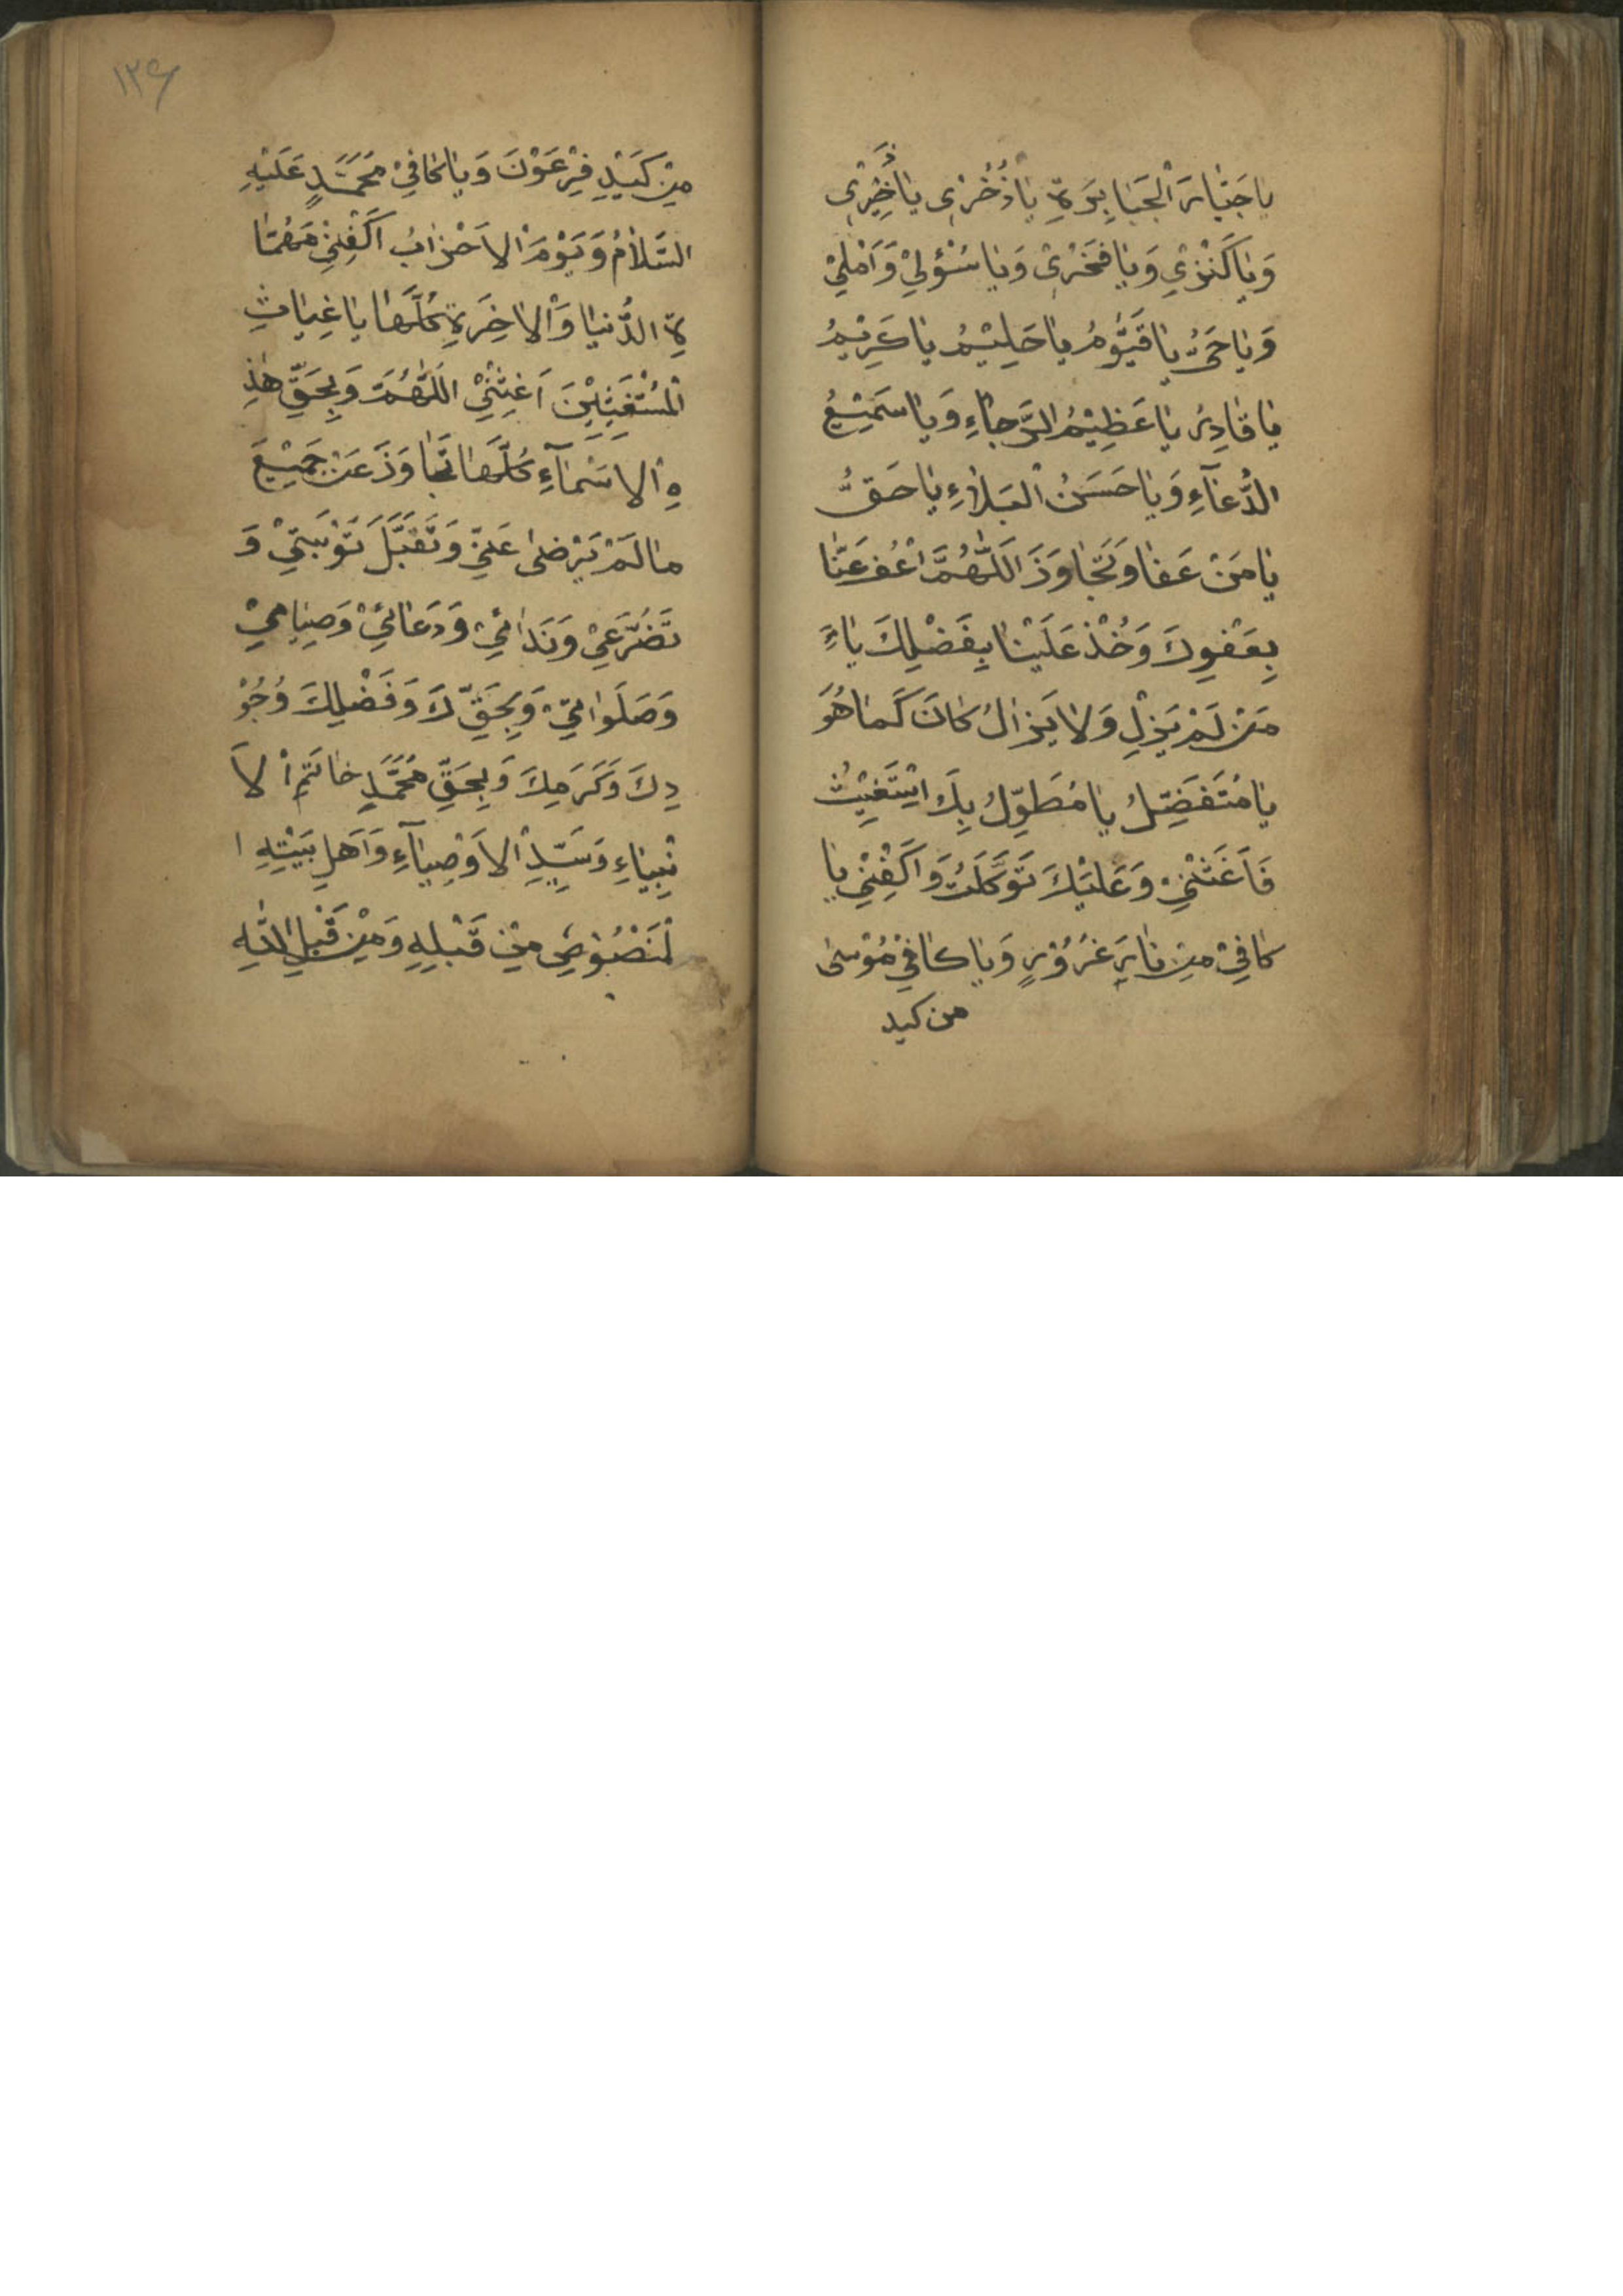 يا جَبّارَ الْجَبابِرَةِ يا ذُخْرى يا ذَخيرَتى
وَيا كَنْزِي وَيا فَخْرى وَيا سُؤْلِيْ وَاَمَلِيْ
وَيا حَىُّ يا قَيُّوْمُ يا حَلِيْمُ يا كَرِيْمُ
يا قادِرُ يا عَظِيْمُ الرَّجاءِ وَيا سَمِيْعُ
الدُّعآءِ وَيا حَسَنُ الْبَلاءِ يا حَقُّ
يا مَنْ عَفا وَتَجاوَزَ اَللّهُمَّ اعْفُ عَنّا
بِعَفْوِكَ وَخُذْ عَلَيْنا بِفَضْلِكَ يا
مَنْ لَمْ يَزِلِ وَلا يَزالُ كانَ كَما هُوَ
يا مُتَفَضِّلُ يا مُطَوِّلُ بِكَ اسْتَغِيْثُ
فَاَغَثْنِيْ وَعَلَيْكَ تَوَكَّلَتُ وَاكْفِنِيْ يا
كافِيْ مِنْ نارِ غَرُوْرٍ وَيا كافِيْ مُوْسىٰ
من كيد
١٢٤
مِنْ كَيْدِ فِرْعَوْنَ وَيا كافِيْ مَحَمَّدٍ عَلَيْهِ
السَّلامُ وَيَوْمَ الاَحْزابُ اكْفِنِيْ مَهُمّا
ةِ الدُّنيا وَالاخِرَةِ كُلَّها يا غِياثِ
الْمُسْتَغِيْثِيْنَ اَغِثْنِيْ اللّهُمَّ وَبِحَقِّ هٰذِ
هِ الاَسْمآءِ كُلَّها تَجاوَزَ عَنْ جَمِيْعَ
ما لَمْ يَرْضىٰ عَنِّيْ وَتَقَبَّلَ تَوْبَتِيْ وَ
تَضَرُّعِيْ وَنَدائِيْ وَدَعائِيْ وَصِيامِيْ
وَصَلَواتِيْ وَبِحَقِّكَ وَفَضْلِكَ وُجُوْ
دِكَ وَكَرَمِكَ وَبِحَقِّ مُحَمَّدٍ خاتَمِ الاَ
نْبِياءِ وَسَيِّدِ الاَوْصِيآءِ وَاَهَلِ بَيْتِهِ ا
لْمَنْصُوْصِ مِنْ قَبْلِهِ وَمِنْ قَبْلِ اللّهِ